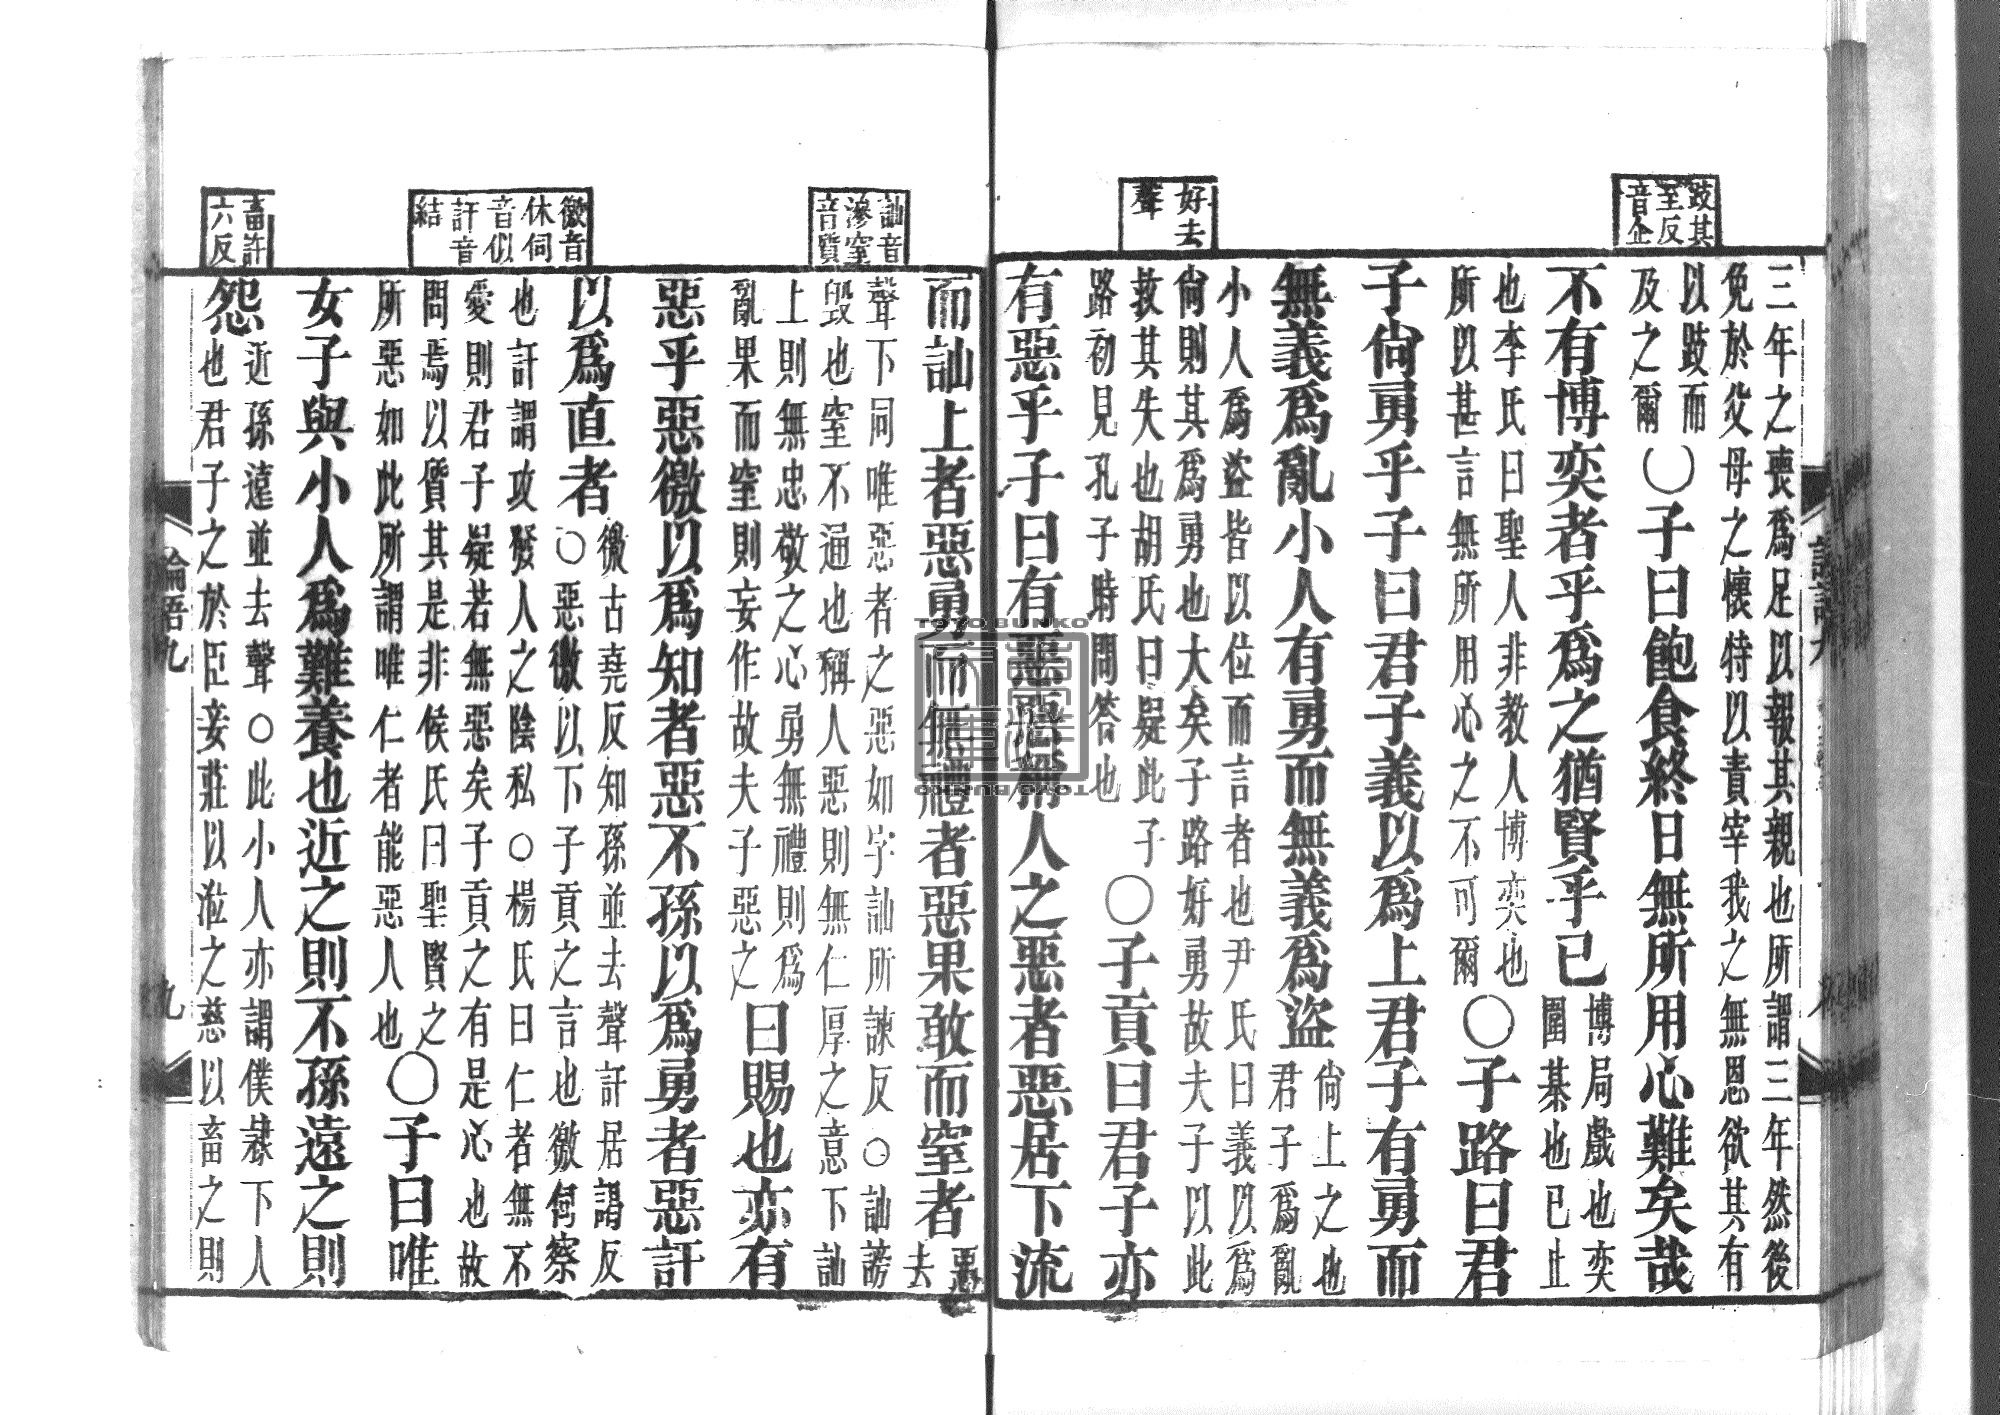 跂其
至反
音企
好去
聲
三年之喪爲足以報其親也所謂三年然後
免於父母之懷特以責宰我之無恩欲其有
以跂而
及之爾
〇子曰飽食終日無所用心難矣哉
不有博奕者乎爲之猶賢乎已
博局戲也奕
圍棊也已止
也李氏曰聖人非教人博奕也
所以甚言無所用心之不可爾
〇子路曰君
子尙勇乎子曰君子義以爲上君子有勇而
無義爲亂小人有勇而無義爲盜
尙上之也
君子爲亂
小人爲盜皆以位而言者也尹氏曰義以爲
尙則其爲勇也大矣子路好勇故夫子以此
救其失也胡氏曰疑此子
路初見孔子時問答也
〇子貢曰君子亦
有惡乎子曰有惡惡稱人之惡者惡居下流
訕音
滲窒
音質
徼音
休伺
音似
訐音
結
畜許
六反
而訕上者惡勇而無禮者惡果敢而窒者
惡
去
聲下同唯惡者之惡如字訕所諫反○訕謗
毀也窒不通也稱人惡則無仁厚之意下訕
上則無忠敬之心勇無禮則爲
亂果而窒則妄作故夫子惡之
曰賜也亦有
惡乎惡徼以爲知者惡不孫以爲勇者惡訐
以爲直者
徼古堯反知孫並去聲訐居謁反
○惡徼以下子貢之言也徼伺察
也訐謂攻發人之陰私○楊氏曰仁者無不
愛則君子疑若無惡矣子貢之有是心也故
問焉以質其是非侯氏曰聖賢之
所惡如此所謂唯仁者能惡人也
〇子曰唯
女子與小人爲難養也近之則不孫遠之則
怨
近孫遠並去聲○此小人亦謂僕隸下人
也君子之於臣妾莊以涖之慈以畜之則
論語九
九
TOYO BUNKO